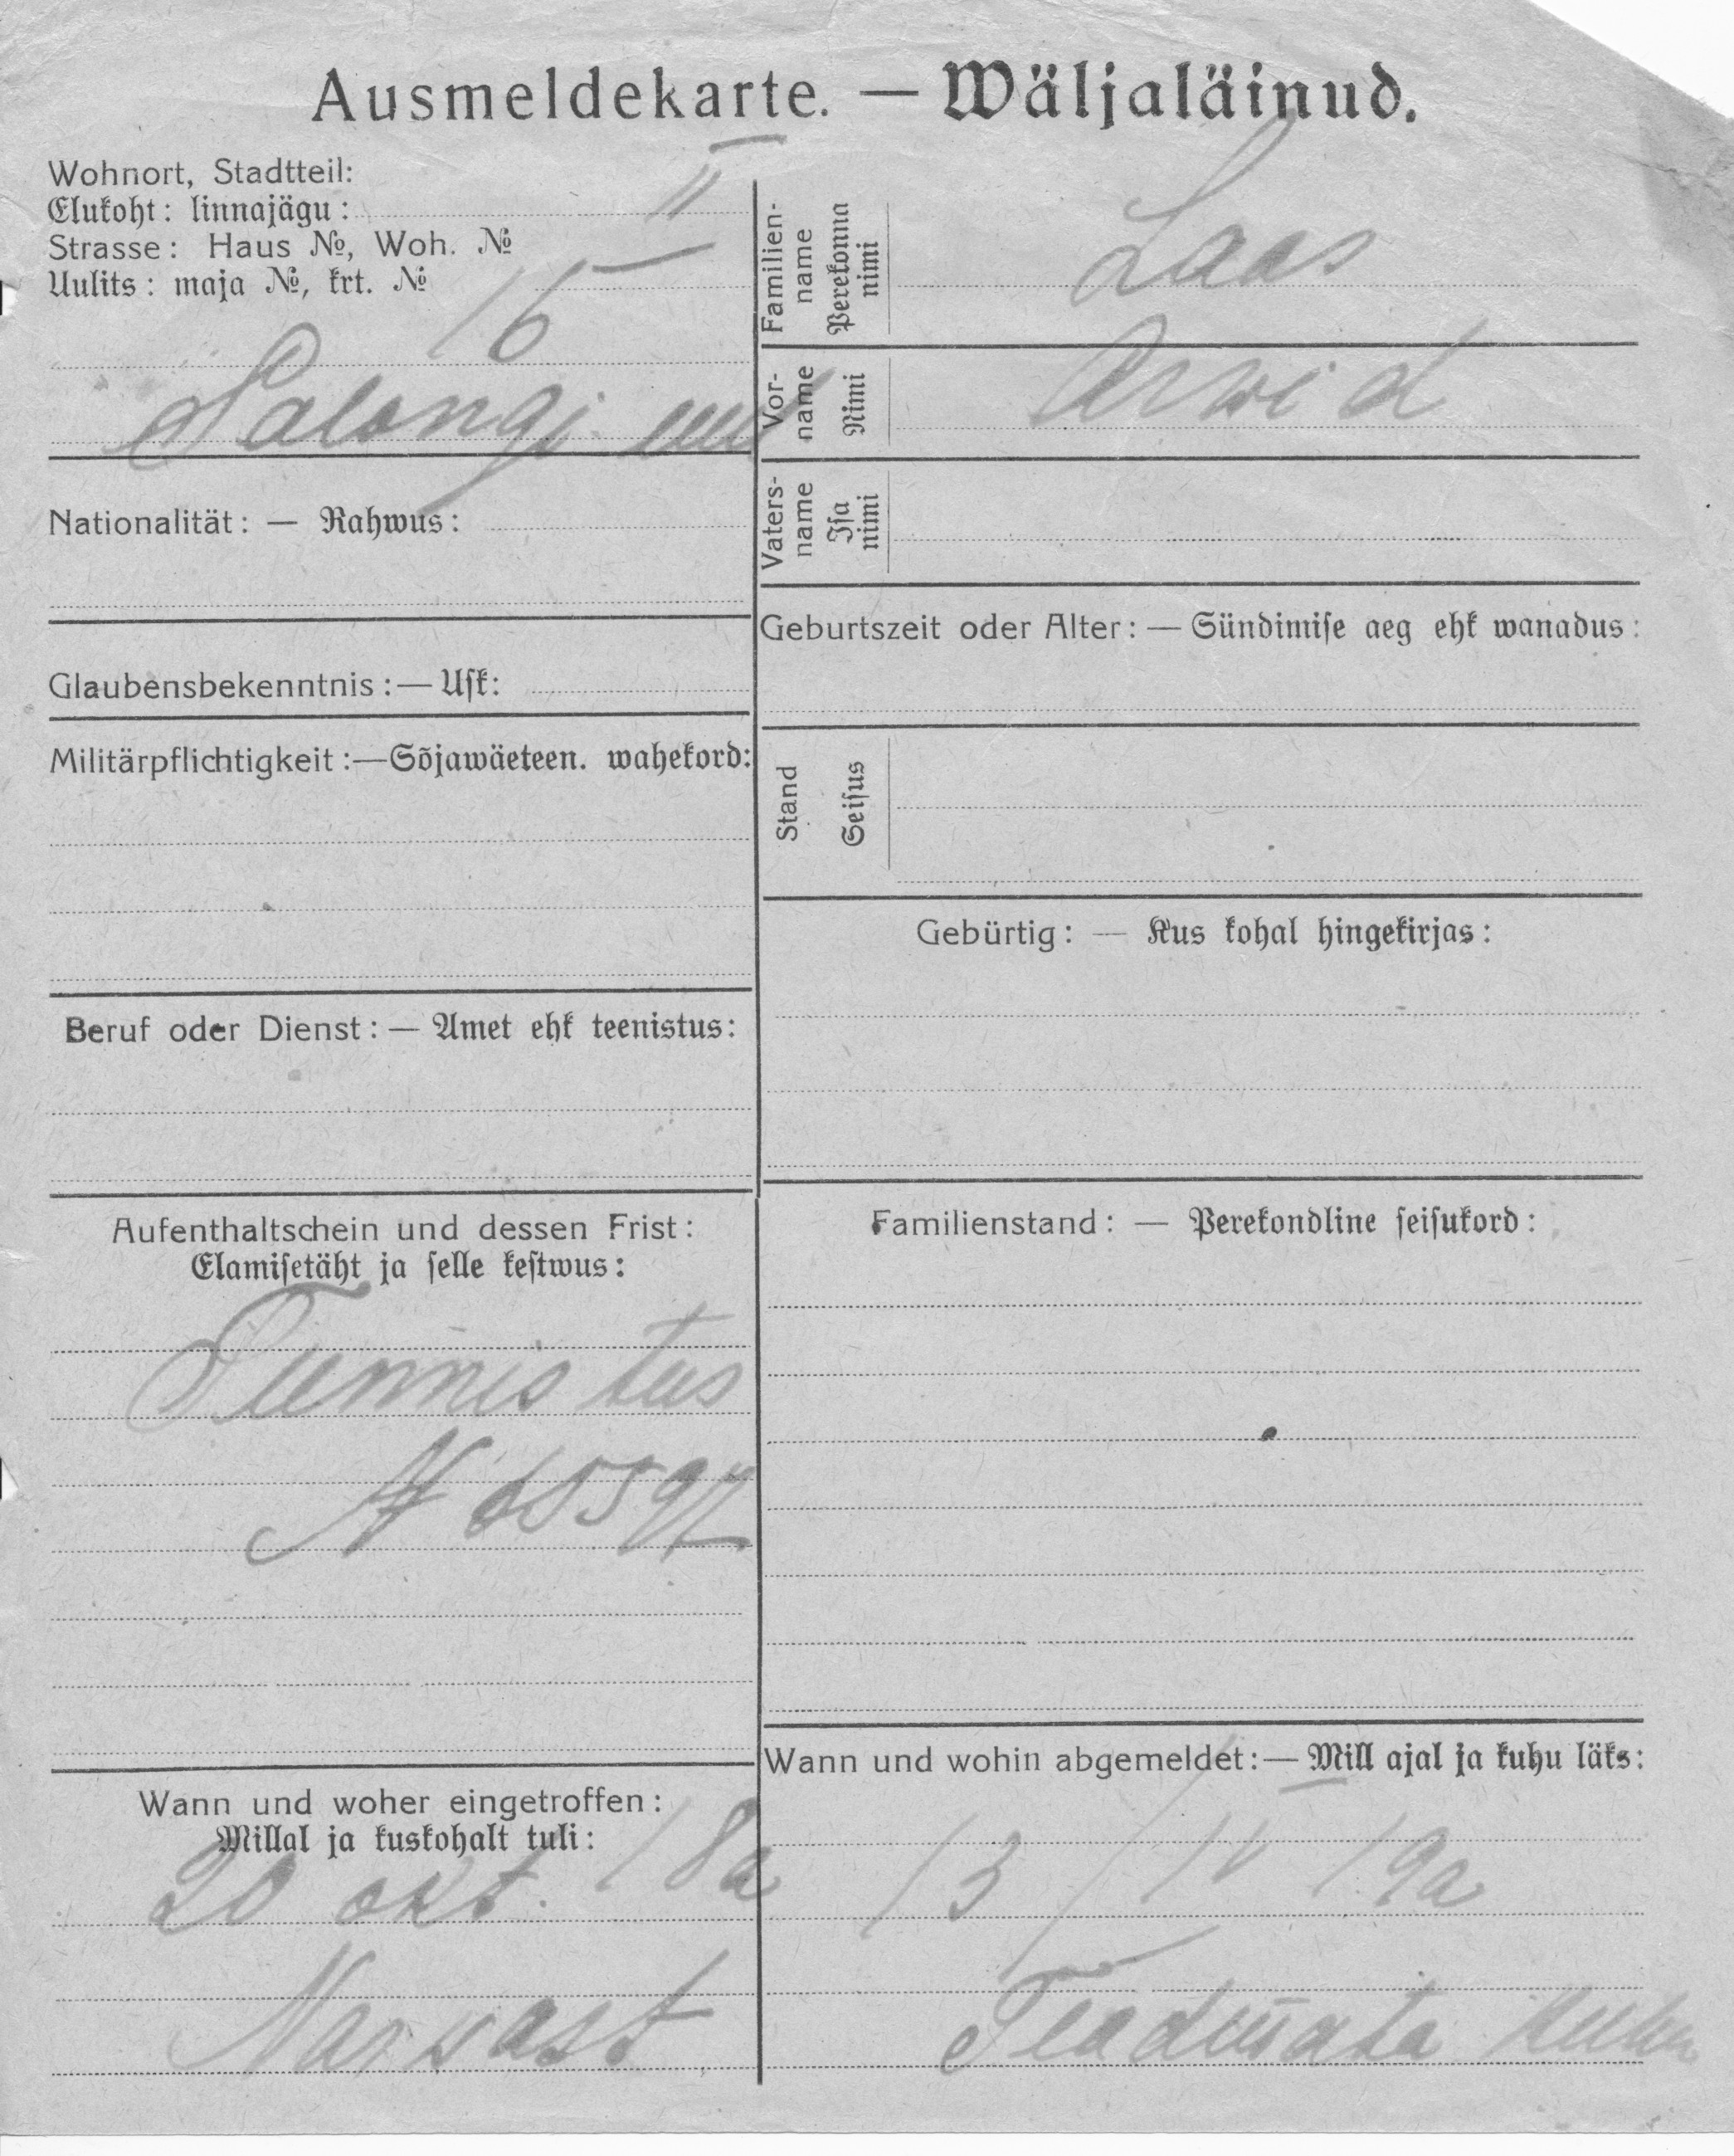 Ausmeldekarte. — Wäljaläinud.
Wohnort, Stadtteil:
Elukoht: linnajägu: II
Strasse: Haus №, Woh. №
Uulits: maja №, krt. №
16
Nationalität: — Rahwus:
Glaubensbekenntnis: — Usk:
Militärpflichtigkeit: — Sõjawäeteen. wahekord:
Beruf oder Dienst: — Amet ehk teenistus:
Aufenthaltschein und dessen Frist:
Elamisetäht ja selle kestwus:
Tunnistus
N
Wann und woher eingetroffen:
Millal ja kuskohalt tuli:
20 okt. 18a
Narwast
Familien-
name
Perekonna
nimi
Laas
Vor-
name
Nimi
Arwid
Vaters-
name
Isa
nimi
Geburtszeit oder Alter: — Sündimise aeg ehk wanadus:
Stand
Seisus
Gebürtig: — Kus kohal hingekirjas:
Familienstand: — Perekondline seisukord:
Wann und wohin abgemeldet: — Mill ajal ja kuhu läks:
13/IV 19a
Teadmata kuhu